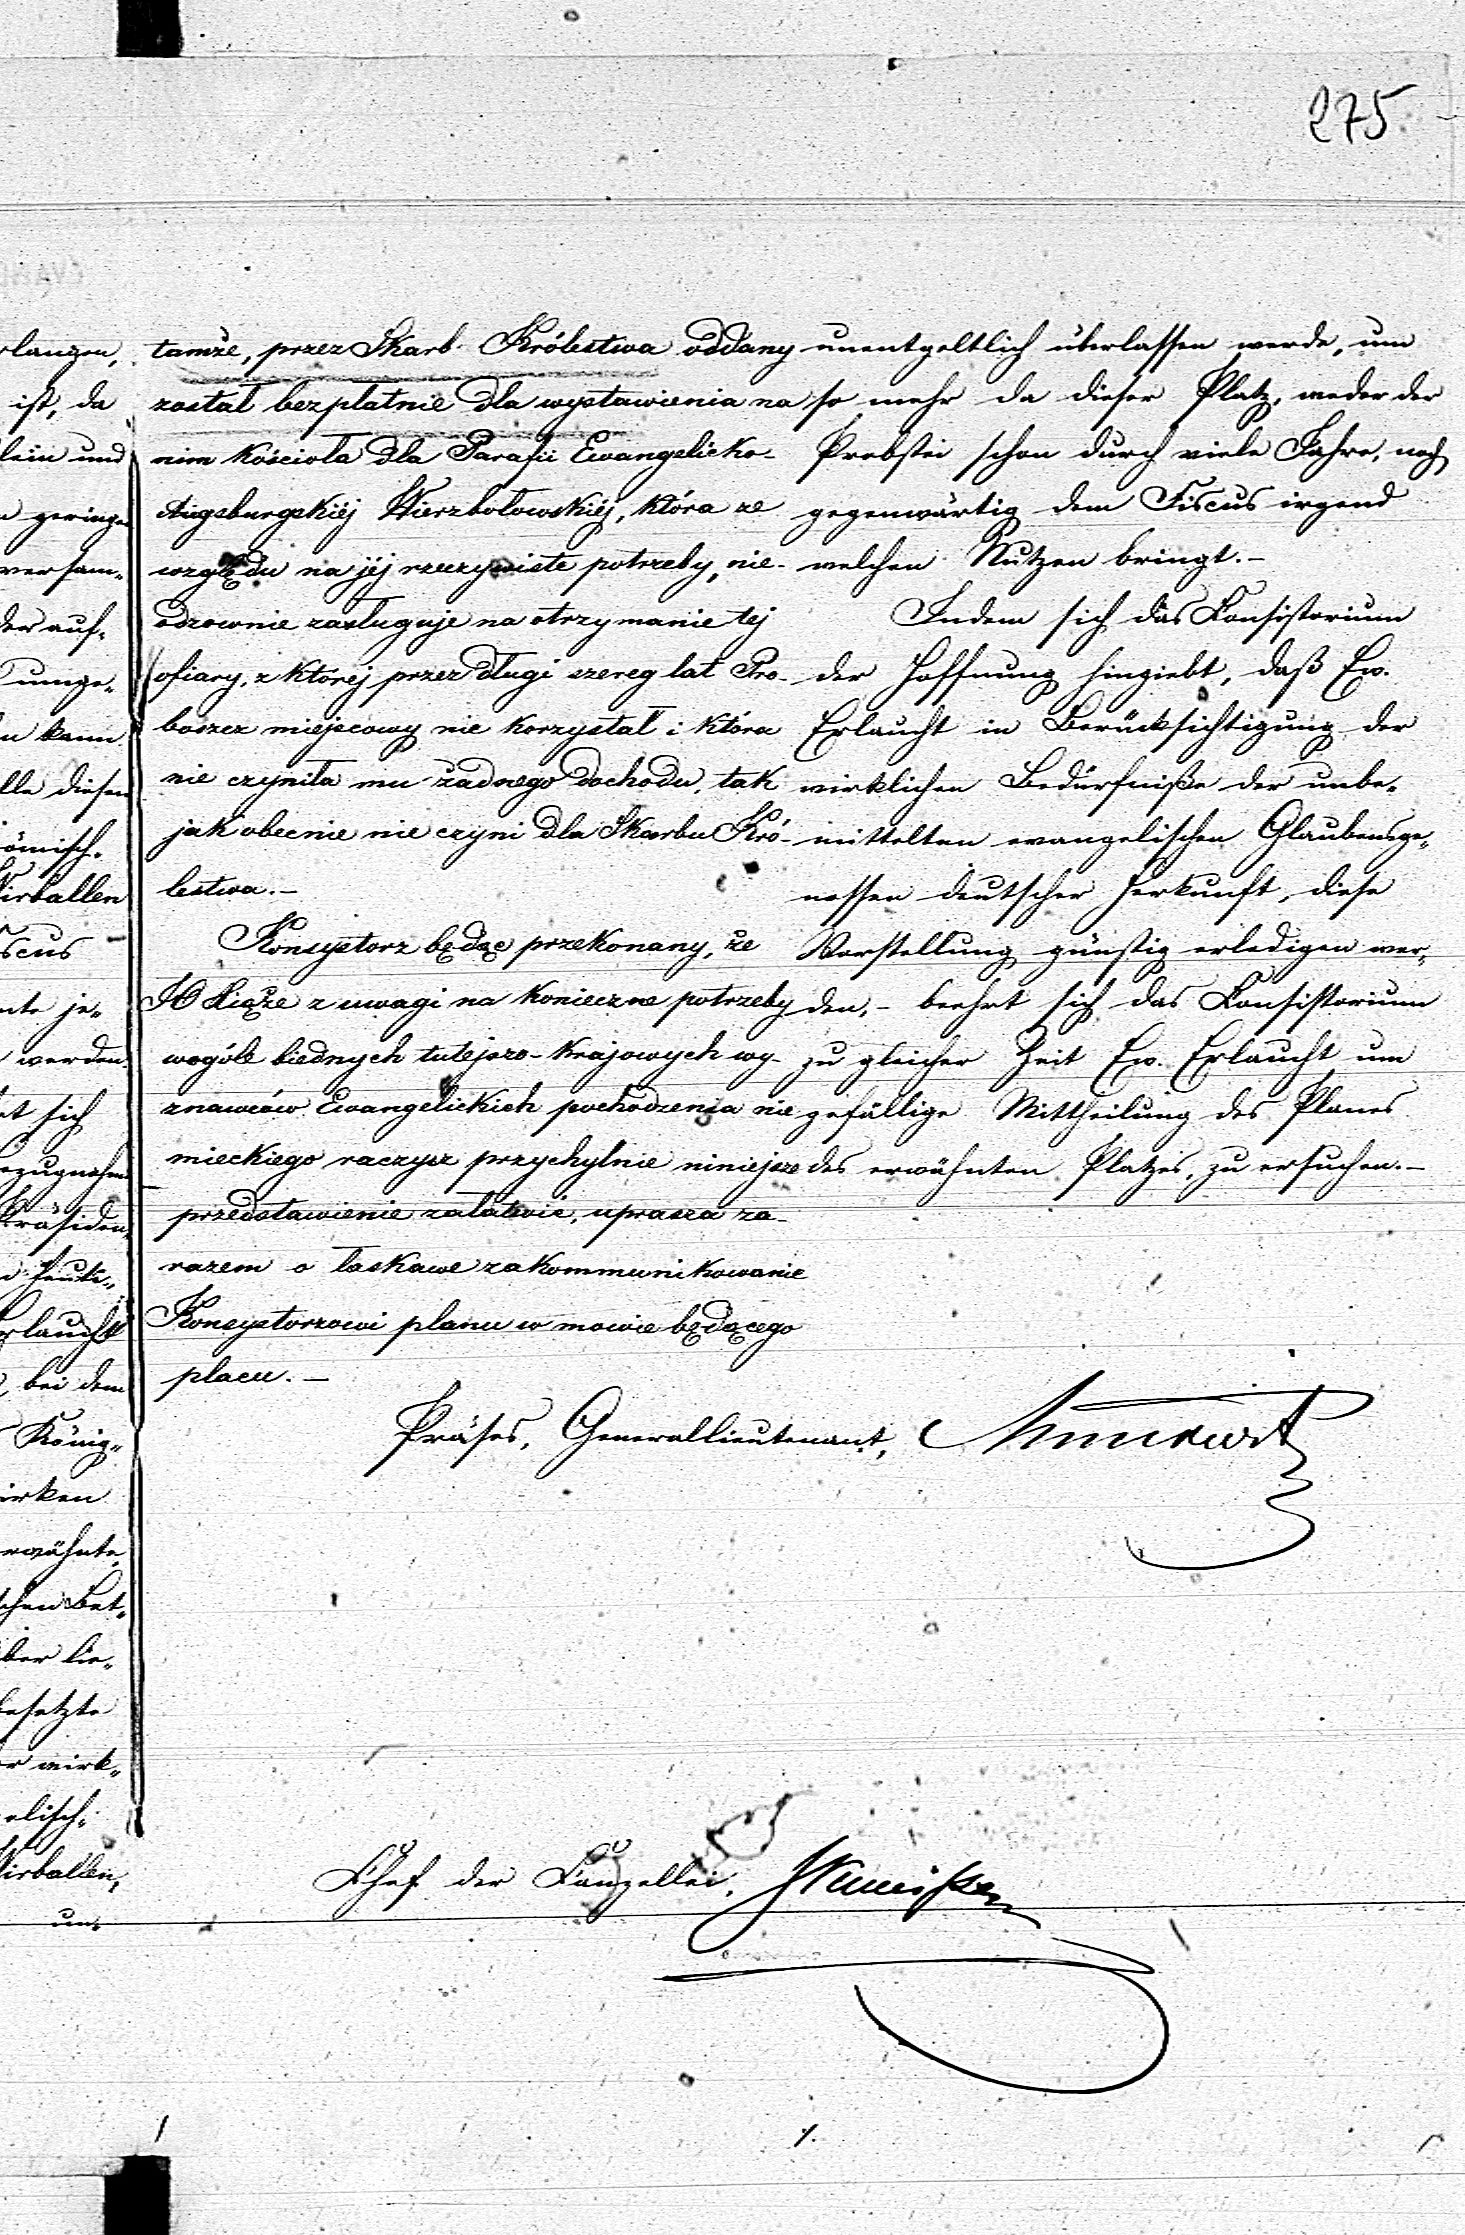 275
tamże, przez Skarb Królestwa oddany
został bezpłatnie dla wystawienia na
nim kościoła dla Parafii Ewangelicko-
Augsburgskiéj Wierzbołowskiéj, która ze
względu na jéj rzeczywiste potrzeby, nie-
odzownie zasługuje na otrzymanie tej
ofiary, z któréj przez długi szereg lat Pro-
boszcz miejscowy nie korzystał i która
nie czyniła mu żadnego dochodu, tak
jak obecnie nie czyni dla Skarbu Kró-
lestwa.-
Konsystorz będąc przekonany, że
JO Książe z uwagi na konieczne potrzeby
wogóle biednych tutejszo-krajowych wy-
znawców Ewangelickich pochodzenia nie
mieckiego raczysz przychylnie niniejsze
przedstawienie załatwić, uprasza za-
razem o łaskawe zakommunikowanie
Konsystorzowi planu w mowie będącego
placu.-
unentgeltlich überlassen werde, um
so mehr da dieser Platz, weder der
Probstei schon durch viele Jahre, noch
gegenwärtig dem Fiscus irgend
welchen Nutzen bringt.-
Indem sich das Konsistorium
der Hoffnung hingiebt, daß Ew.
Erlaucht in Berücksichtigung der
wirklichen Bedürfniße der unbe-
mittelten evangelischen Glaubensge-
nossen deutscher Herkunft, diese
Vorstellung günstig erledigen wer-
den, - beehrt sich das Konsistorium
zu gleicher Zeit Ew. Erlaucht um
gefällige Mittheilung des Planes
des erwähnten Platzes, zu ersuchen.-
Präses, Generallieutenant,
Chef der Canzellei,
rlangen,
ist, da
lein und
geringe
versam-
der auf-
umge-
kann
lle diesen
ömisch-
Wirballen
scus
nte je-
werden
et sich
ezugnahme
Präsiden
heute-
rlaucht
bei dem
König-
irken
erwähnte
chen Bet-
ber lie-
besetzte
r wirk-
elisch-
Wirballen,
un-